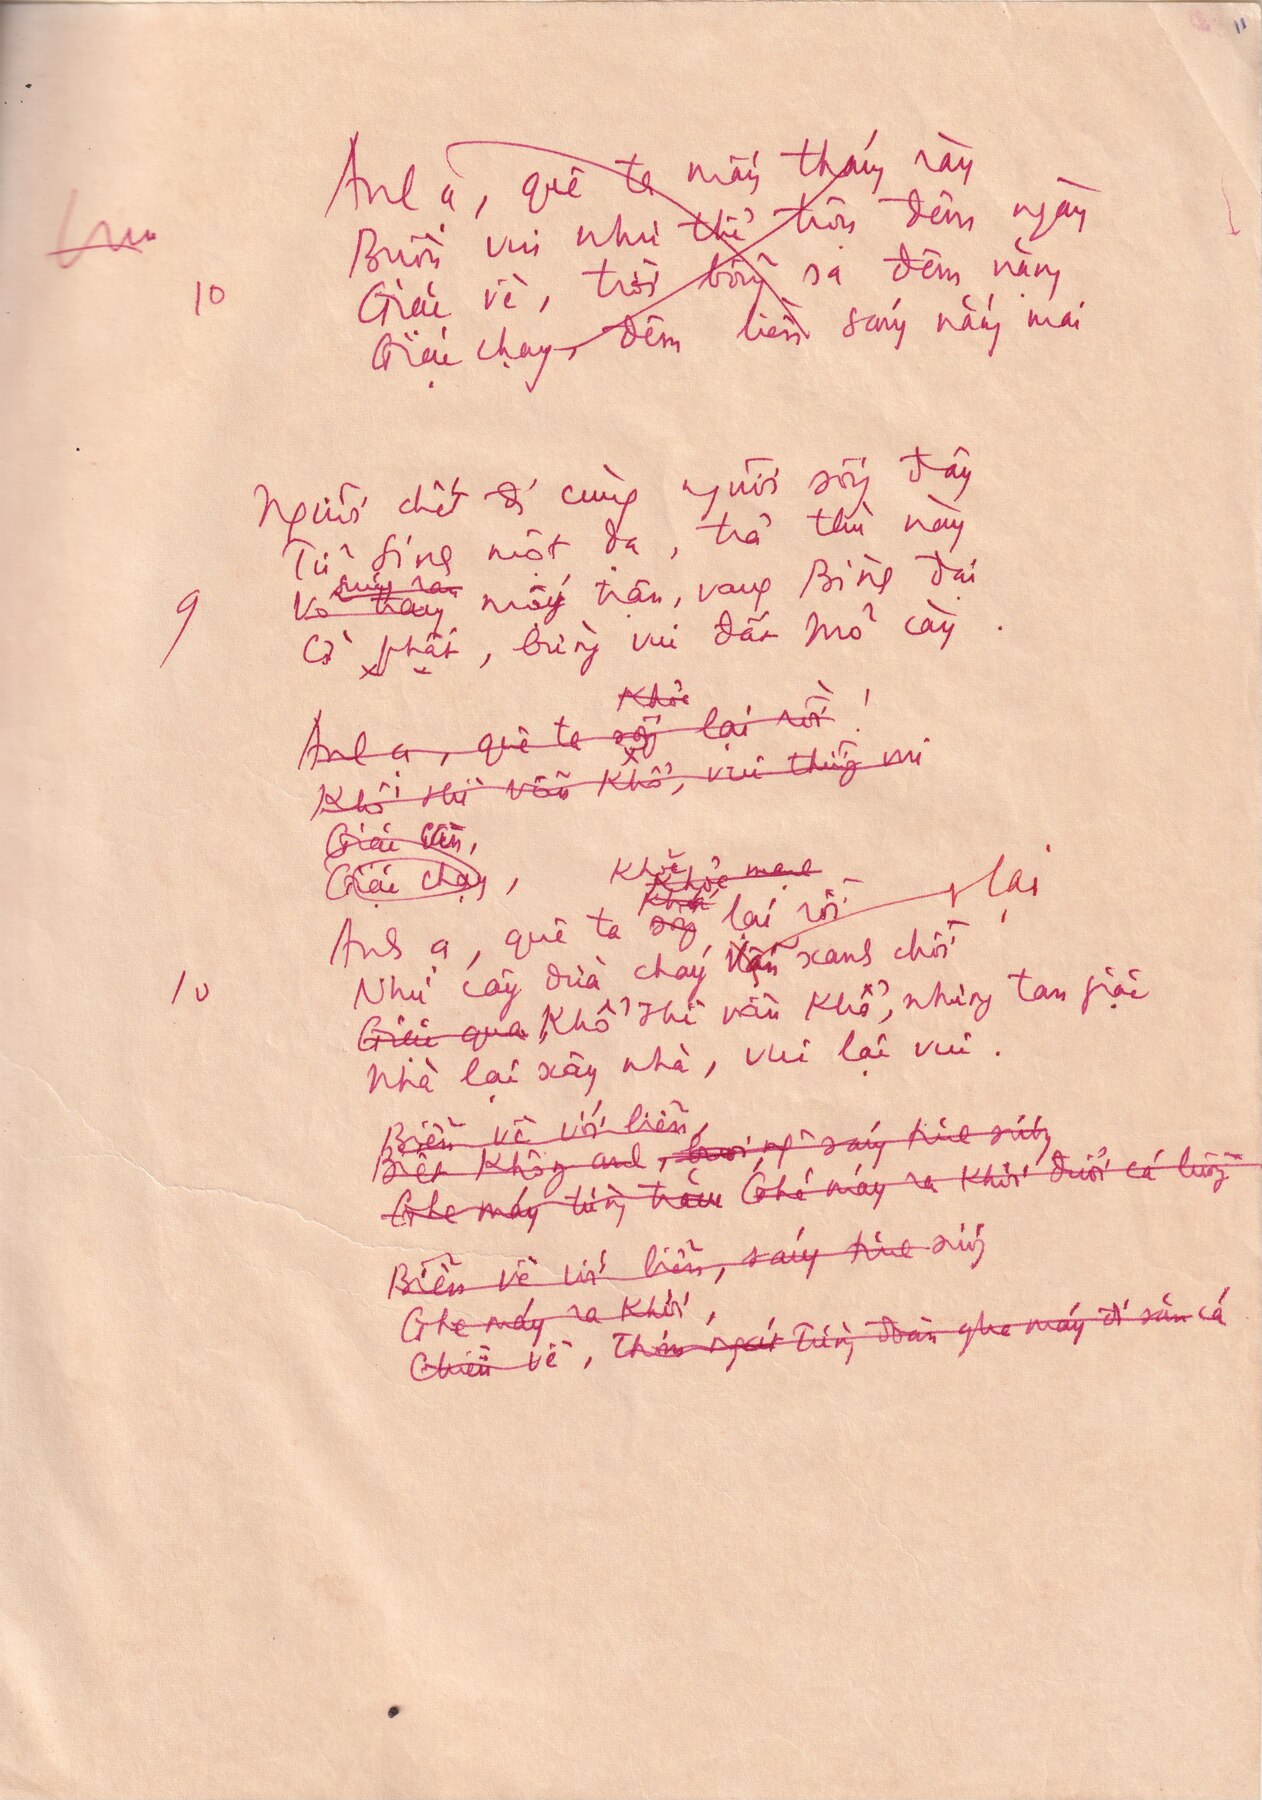 "
Anh ạ, quê ta mấy tháng rày
Buồn vui như thể trộn đêm ngày
10
Giặc về, trời bỗng sa đêm nặng
Giặc chạy, đêm liền sáng nắng mai
Người chết đi cùng người sống đây
Từ sinh một dạ, trả thù này
súng ra
9
Vỗ tay mấy trận, vang Bình Đại
Cờ phất, bừng vui đất Mỏ Cày.
Khỏe
Anh ạ, quê ta sống lại rồi!
Khổ thì vẫn khổ, vui thì vui
Giặc
Giặc chạy,
Khỏe mạnh
Khỏe
lại
Anh ạ, quê ta sống lại rồi
10
Như cây dừa cháy vẫn xanh chồi
Giặc qua, Khổ thì vẫn khổ, nhưng tan giặc
Nhà lại xây nhà, vui lại vui.
Biển về với biển,
Biết không anh, sáng
Ghe máy từng Ghe máy ra khơi đuổi cá
Biển về với biển, sáng
Ghe máy ra khơi,
Chiều về, từng đoàn ghe máy đi săn cá